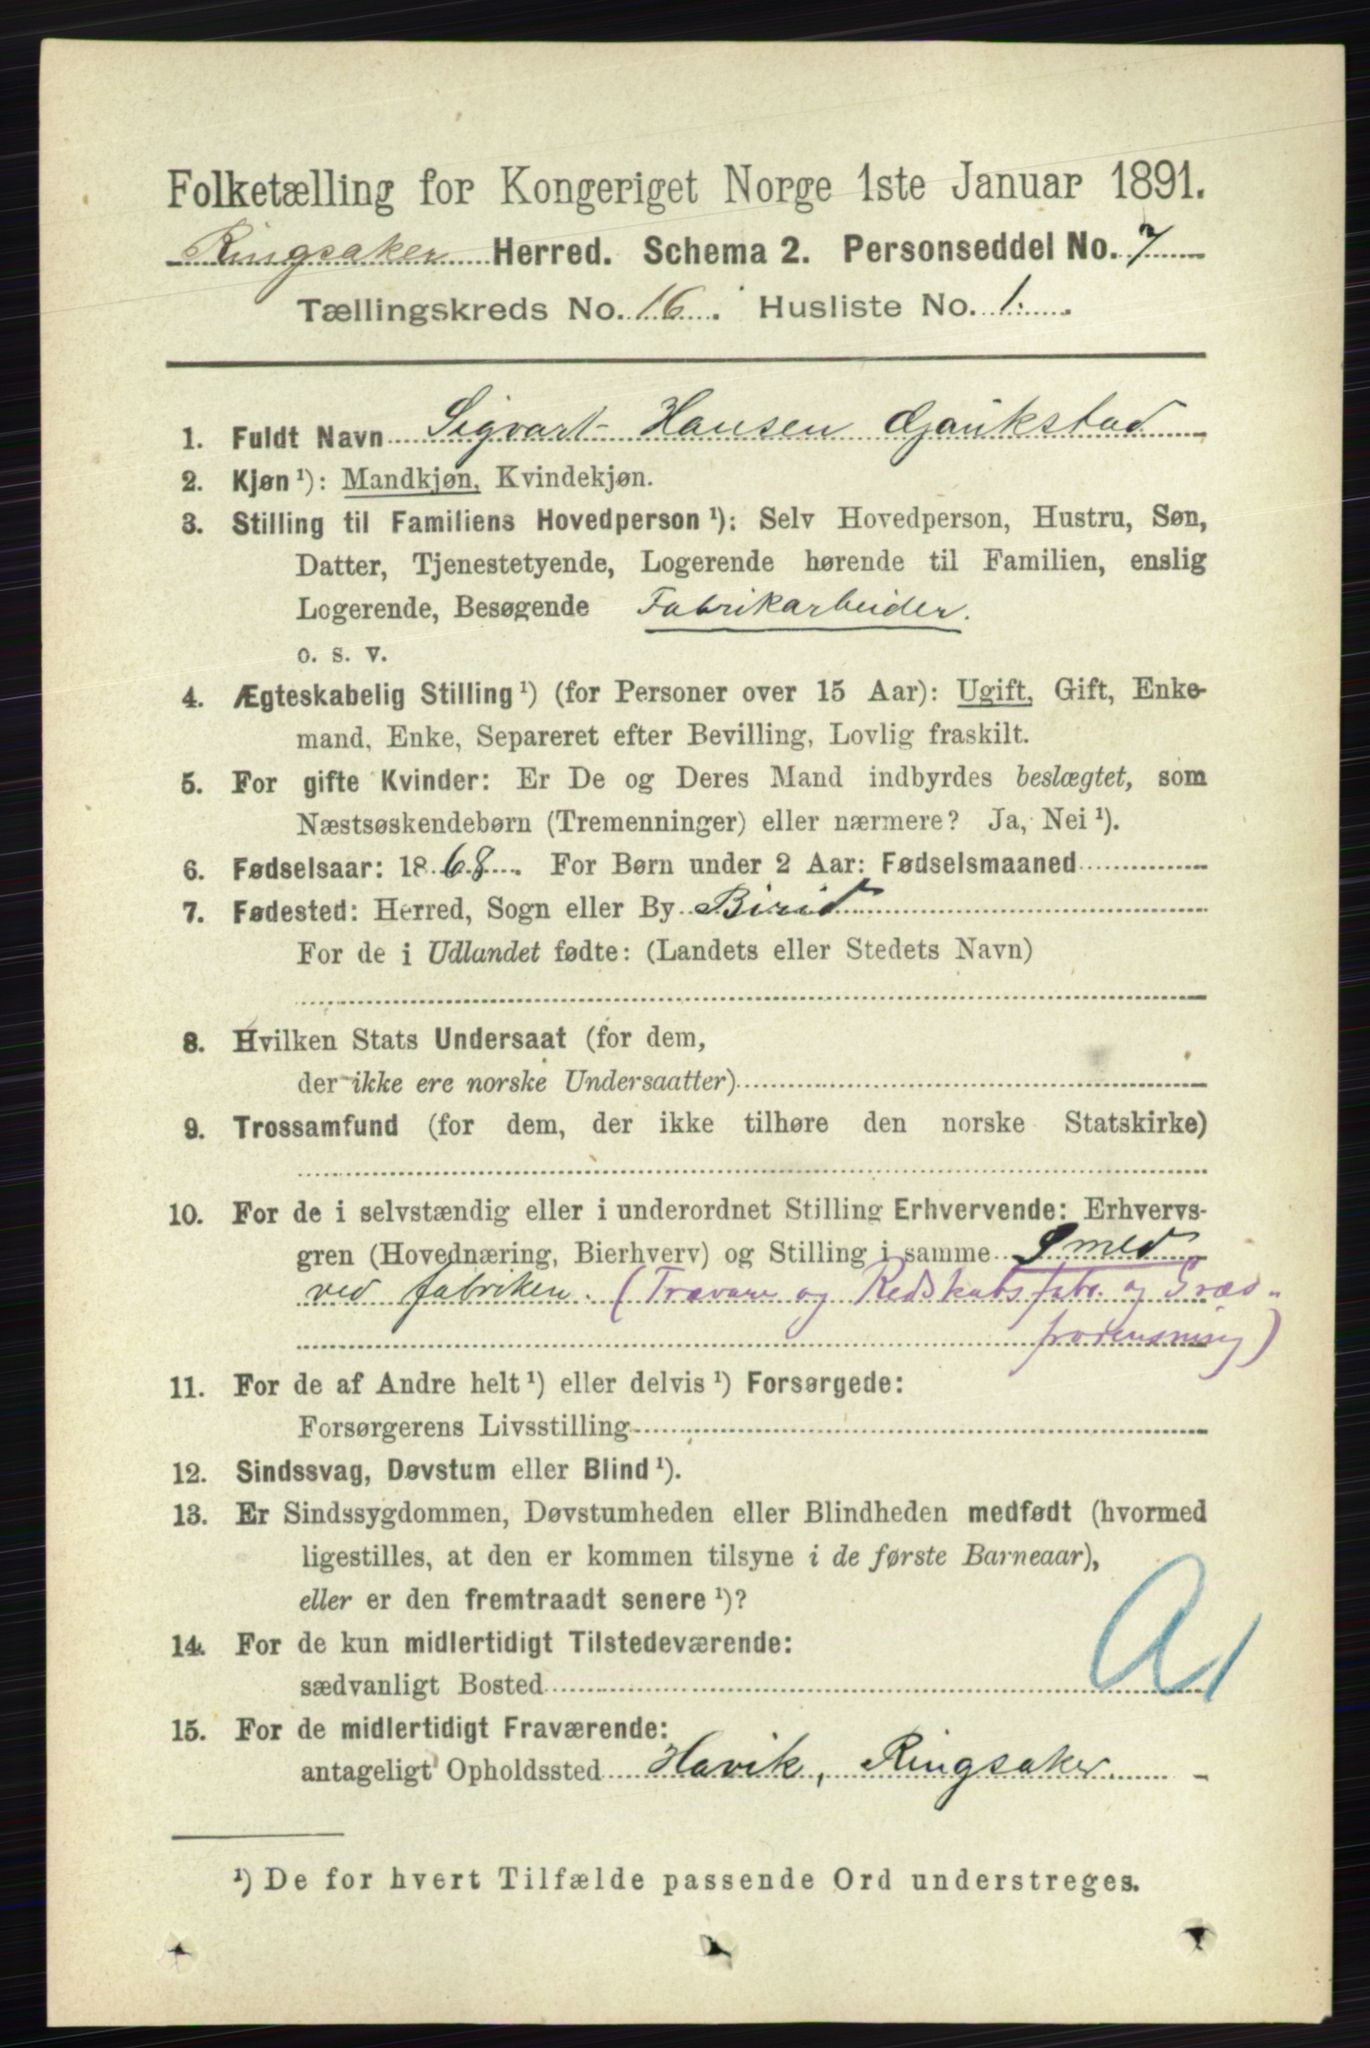 Folketælling for Kongeriget Norge 1ste Januar 1891.
Ringsaker Herred. Schema 2. Personseddel No. 7
Tællingskreds No. 16. Husliste No. 1.
1. Fuldt Navn Sigvart Hansen Gjøikstad
2. Kjøn ¹): Mandkjøn, Kvindekjøn.
3. Stilling til Familiens Hovedperson ¹): Selv Hovedperson, Hustru, Søn,
Datter, Tjenestetyende, Logerende hørende til Familien, enslig
Logerende, Besøgende Fabrikarbeider.
o. s. v.
4. Ægteskabelig Stilling ¹) (for Personer over 15 Aar): Ugift, Gift, Enke-
mand, Enke, Separeret efter Bevilling, Lovlig fraskilt.
5. For gifte Kvinder: Er De og Deres Mand indbyrdes beslægtet, som
Næstsøskendebørn (Tremenninger) eller nærmere? Ja, Nei ¹).
6. Fødselsaar: 1868. For Børn under 2 Aar: Fødselsmaaned
7. Fødested: Herred, Sogn eller By Birid
For de i Udlandet fødte: (Landets eller Stedets Navn)
8. Hvilken Stats Undersaat (for dem,
der ikke ere norske Undersaatter)
9. Trossamfund (for dem, der ikke tilhøre den norske Statskirke)
10. For de i selvstændig eller i underordnet Stilling Erhvervende: Erhvervs-
gren (Hovednæring, Bierhverv) og Stilling i samme Smed
ved fabriken. (Trævare og Redskabsfabr. og
11. For de af Andre helt ¹) eller delvis ¹) Forsørgede:
Forsørgerens Livsstilling
12. Sindssvag, Døvstum eller Blind ¹).
13. Er Sindssygdommen, Døvstumheden eller Blindheden medfødt (hvormed
ligestilles, at den er kommen tilsyne i de første Barneaar),
eller er den fremtraadt senere ¹)?
14. For de kun midlertidigt Tilstedeværende:
sædvanligt Bosted
A1
15. For de midlertidigt Fraværende:
antageligt Opholdssted Havik, Ringsaker
¹) De for hvert Tilfælde passende Ord understreges.